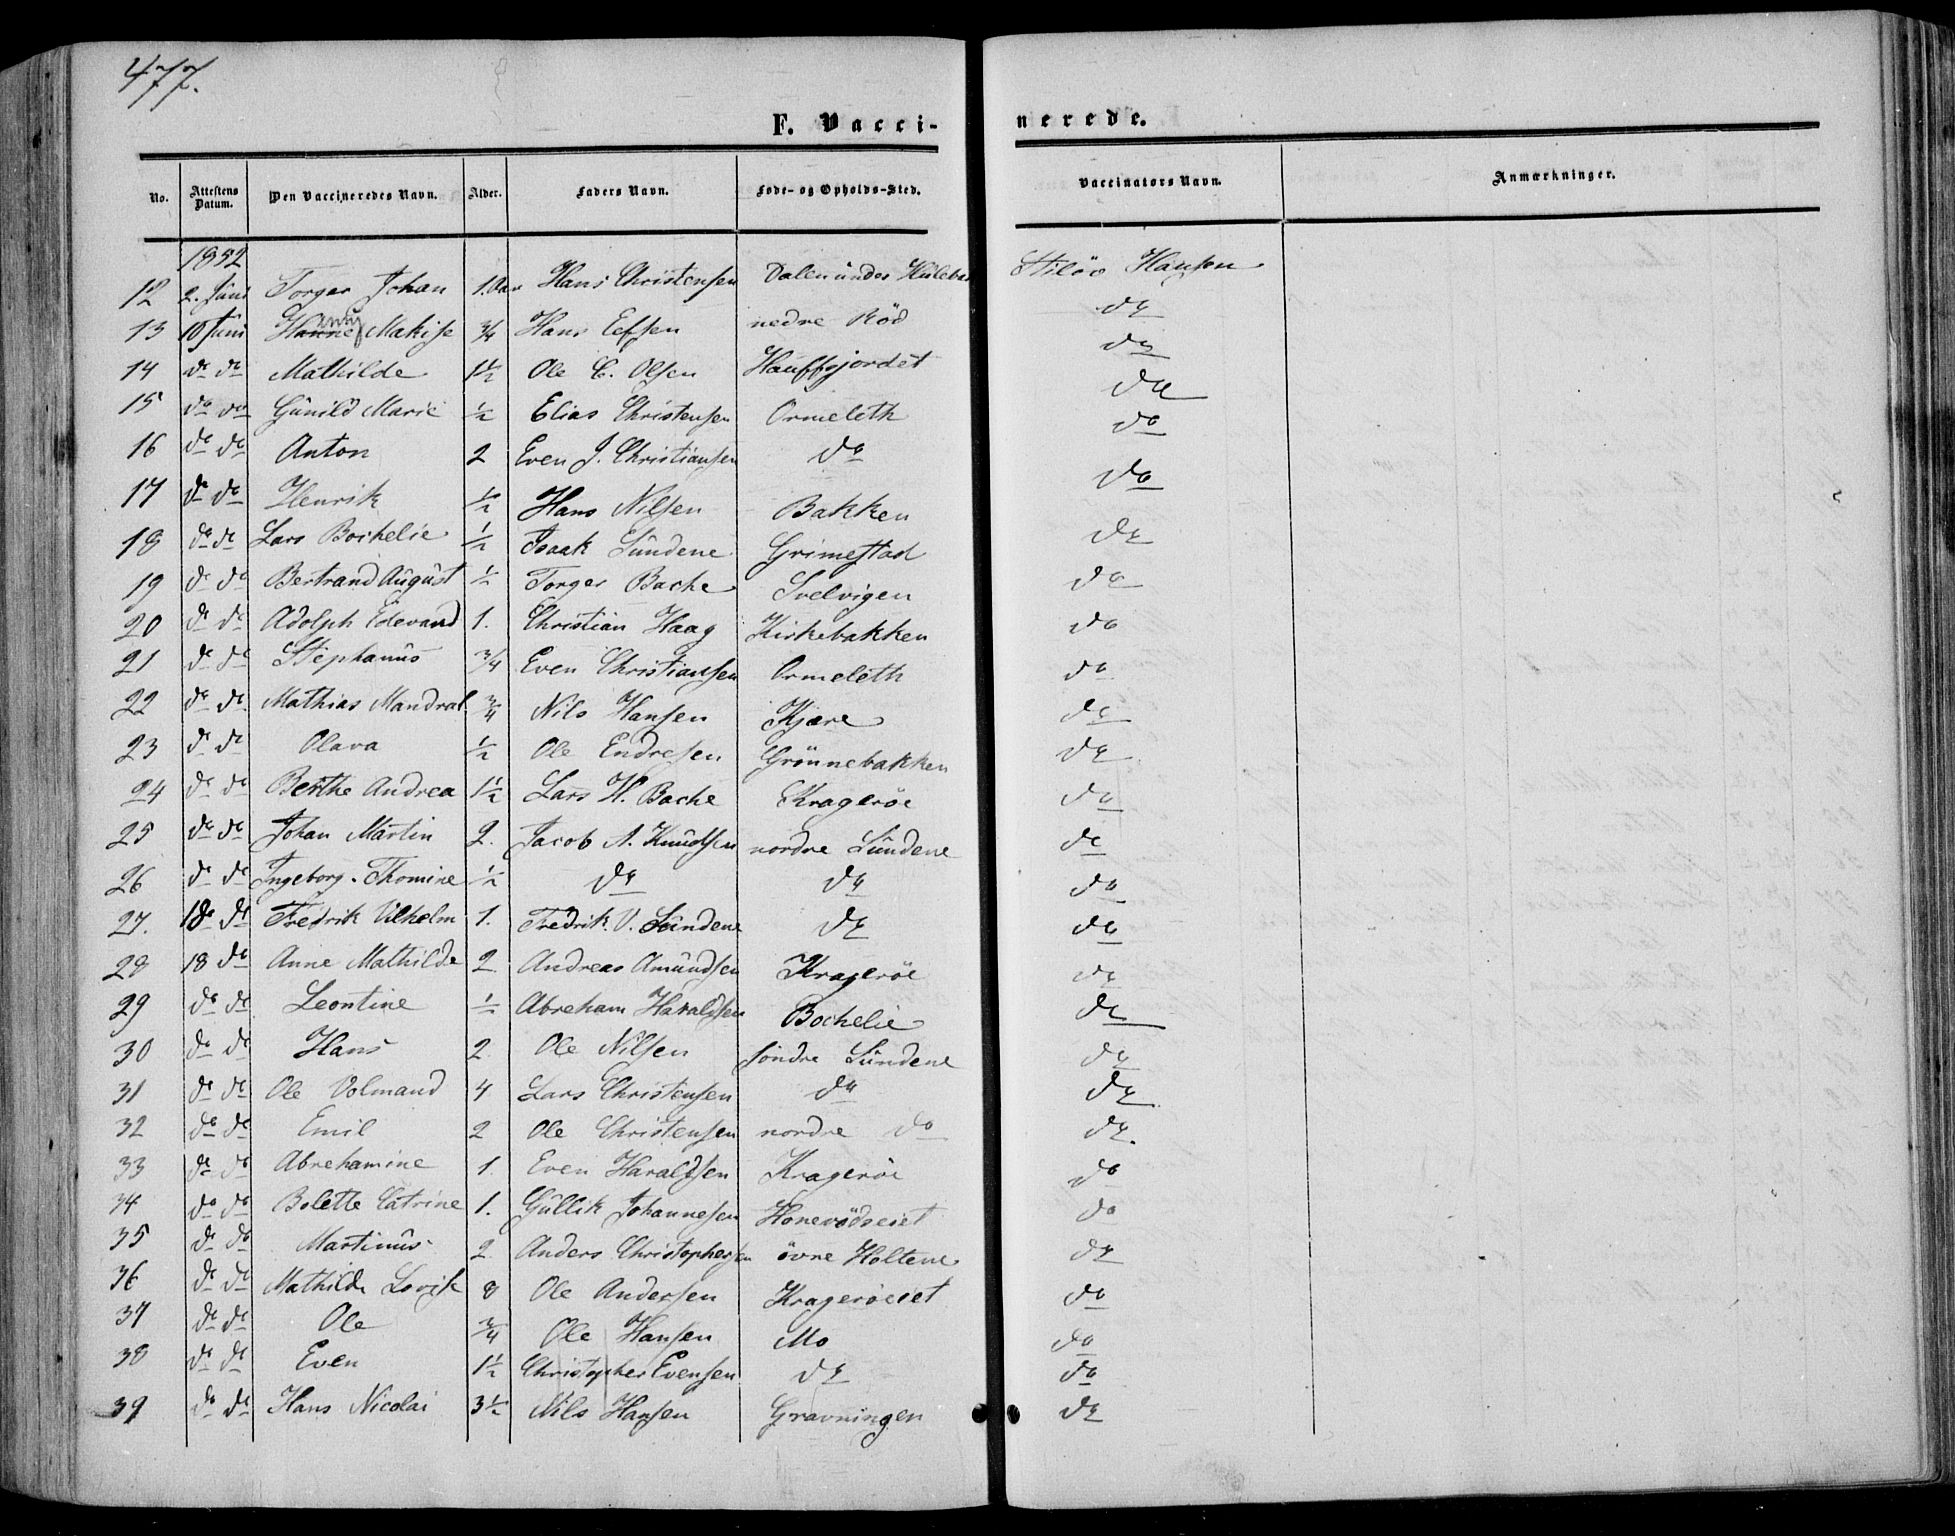 477.
F. Vacci- nerede.
No. Attestens Datum. Den Vaccineredes Navn. Alder. Faders Navn. Føde- og Opholds-Sted. Vaccinators Navn. Anmærkninger.
1852
12 2. Juni Torger Johan 1. Aar Hans Christensen Dalen under Hansen
13 10 Juni Hanne Makise 3/4 Hans Eefsen nedre Röd do
14 do do Mathilde 1 1/2 Ole C. Olsen Hauffjordet do
15 do do Gunild Marie 1/2 Elias Christensen Ormeleth do
16 do do Anton 2 Even J. Christiansen do do
17 do do Henrik 1/2 Hans Nilsen Bakken do
18 do do Lars Bochelie 1/2 Isaak Sundene Grimestad do
19 do do Bertrand August 1/2 Torger Bache Svelvigen do
20 do do Adolph Edevard 1. Christian Haag Kirkebakken do
21 do do Stephanus 3/4 Even Christiansen Ormeleth do
22 do do Mathias Mandral 3/4 Nils Hansen Kjære do
23 do do Olava 1/2 Ole Endresen Grönnebakken do
24 do do Berthe Andrea 1 1/2 Lars H. Bache Kragerøe do
25 do do Johan Martin 2. Jacob A. Knudsen nordre Sundene do
26 do do Ingeborg Thomine 1/2 do do do
27. 18 do Fredrik Vilhelm 1. Fredrik V. Sundene do do
28 18 do Anne Mathilde 2 Andreas Amundsen Kragerøe do
29 do do Leontine 1/2 Abreham Haraldsen Bochelie do
30 do do Hans 2. Ole Nilsen söndre Sundene do
31 do do Ole Volmand 4 Lars Christensen do do
32 do do Emil 2 Ole Christensen nordre do do
33 do do Abrehamine 1. Even Haraldsen Kragerøe do
34 do do Bolette Catrine 1. Gullik Johannesen Honerödseiet do
35 do do Martinus 2. Anders Christophersen övre Holtene do
36 do do Mathilde Lovise 8 Ole Andersen Kragerøeiet do
37 do do Ole 3/4 Ole Hansen Mo do
38 do do Even 1 1/2 Christopher Evensen do do
39 do do Hans Nicolai 3 1/2 Nils Hansen Gravningen do